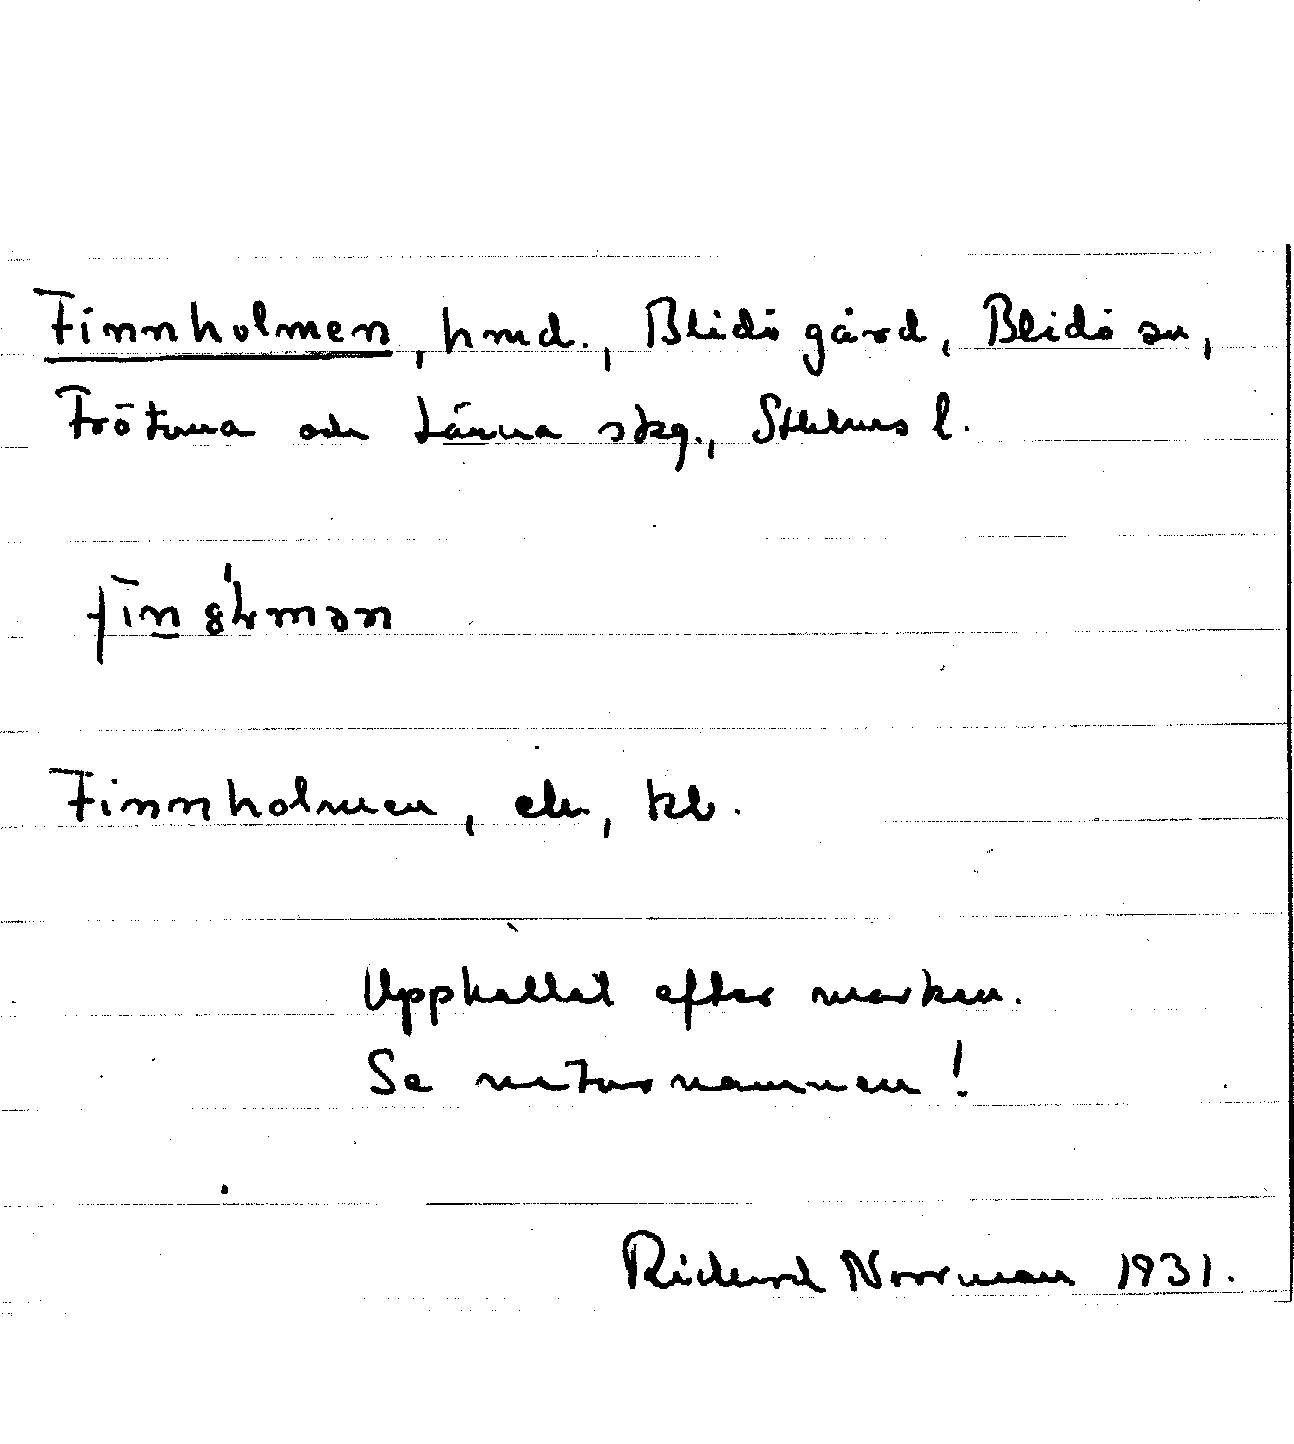 Finnholmen, hmd., Blidö gård, Blidö sn,
Frötuna och Länna skg., Sthlms l.
Finnholmen, ek, kb.
Upphallat efter marken.
Se naturnamnen!
Rickard Norrman 1931.